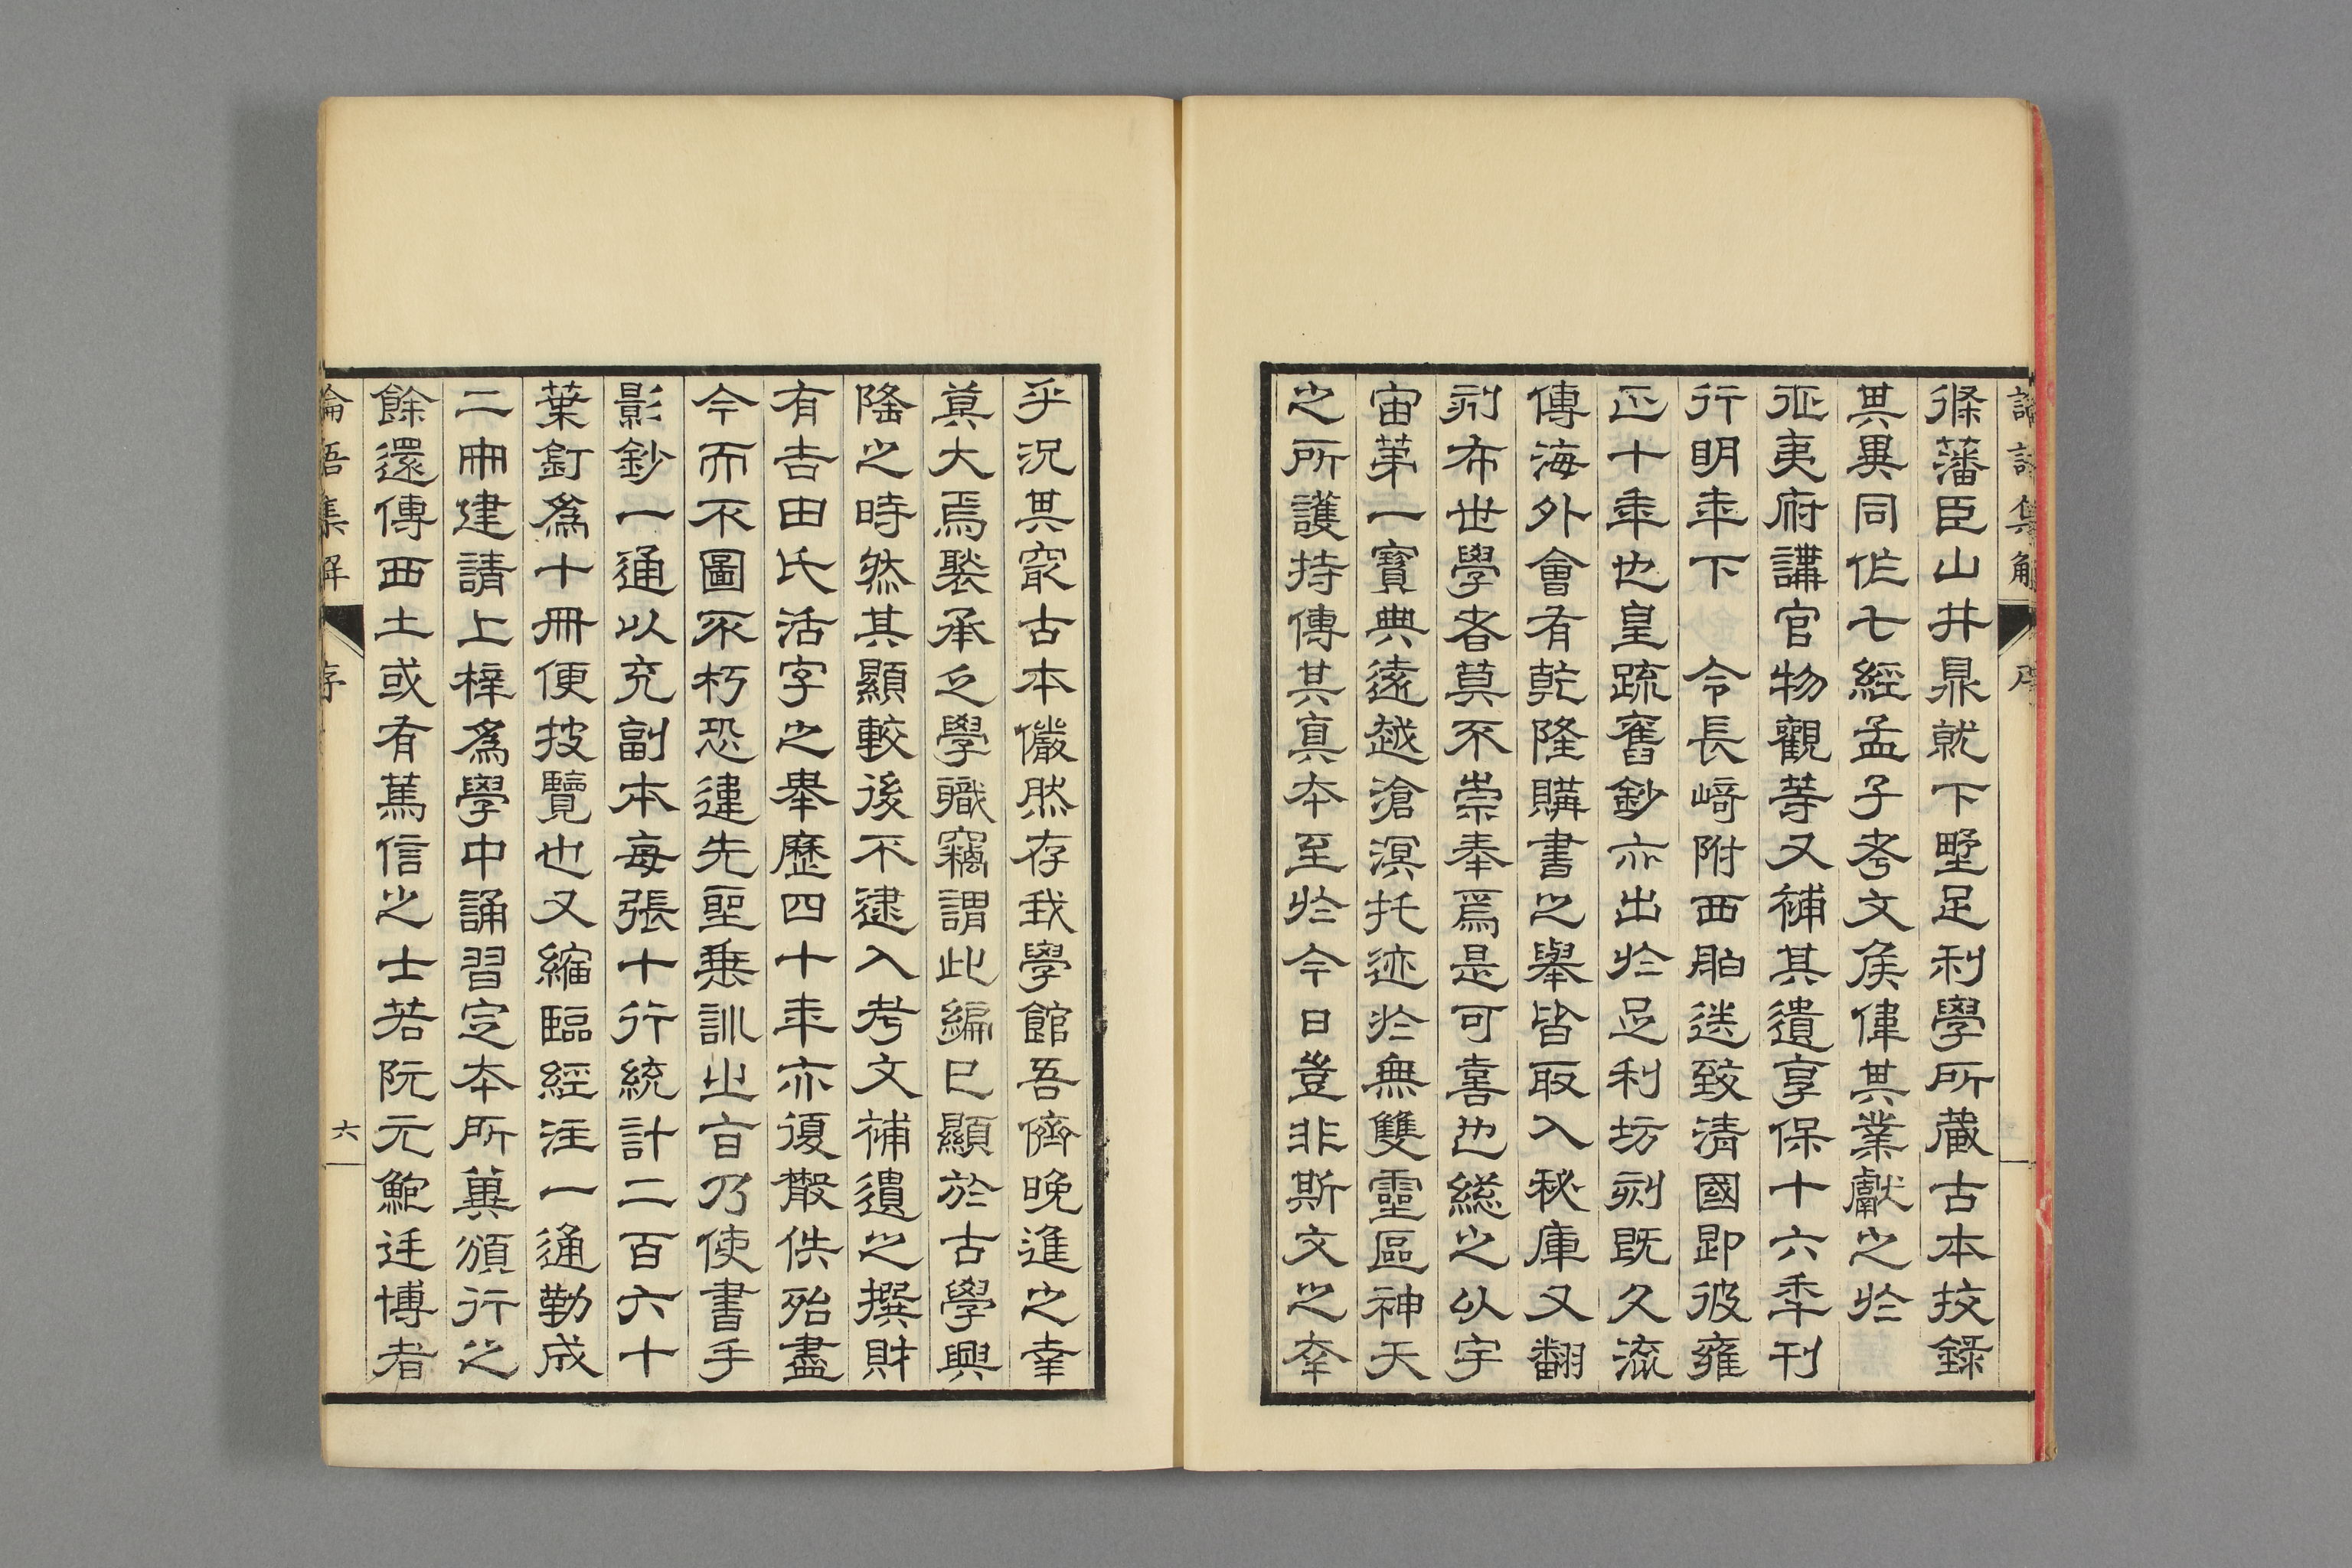 論語集解 序
條藩臣山井鼎就下墅足利學所蔵古本挍錄
其異同作七經孟子考文矦偉其業獻之於
征夷府講官物觀等又補其遺享保十六年刊
行明年下 令長﨑附西舶送致清國卽彼雍
正十年也皇疏舊鈔亦出於足利坊刻既久流
傳海外會有乾隆購書之舉皆取入秘庫又翻
刻布世學者莫不崇奉焉是可喜也總之以宇
宙第一寶典遠越滄溟托迹於無雙靈區神天
之所護持傳其真本至於今日豈非斯文之幸
乎況其最古本儼然存我學館吾儕晚進之幸
莫大焉褧承乏學職竊謂此編已顯於古學興
隆之時然其顯較後不逮入考文補遺之撰財
有吉田氏活字之舉歷四十年亦復散佚殆盡
今而不圖不朽恐違先聖乗訓之旨乃使書手
影鈔一通以充副本每張十行統計二百六十
葉釘爲十冊便披覽也又縮臨經注一通勒成
二冊建請上梓爲學中誦習定本所冀頒行之
餘還傳西土或有篤信之士若阮元鮑廷博者
論語集解 序 六